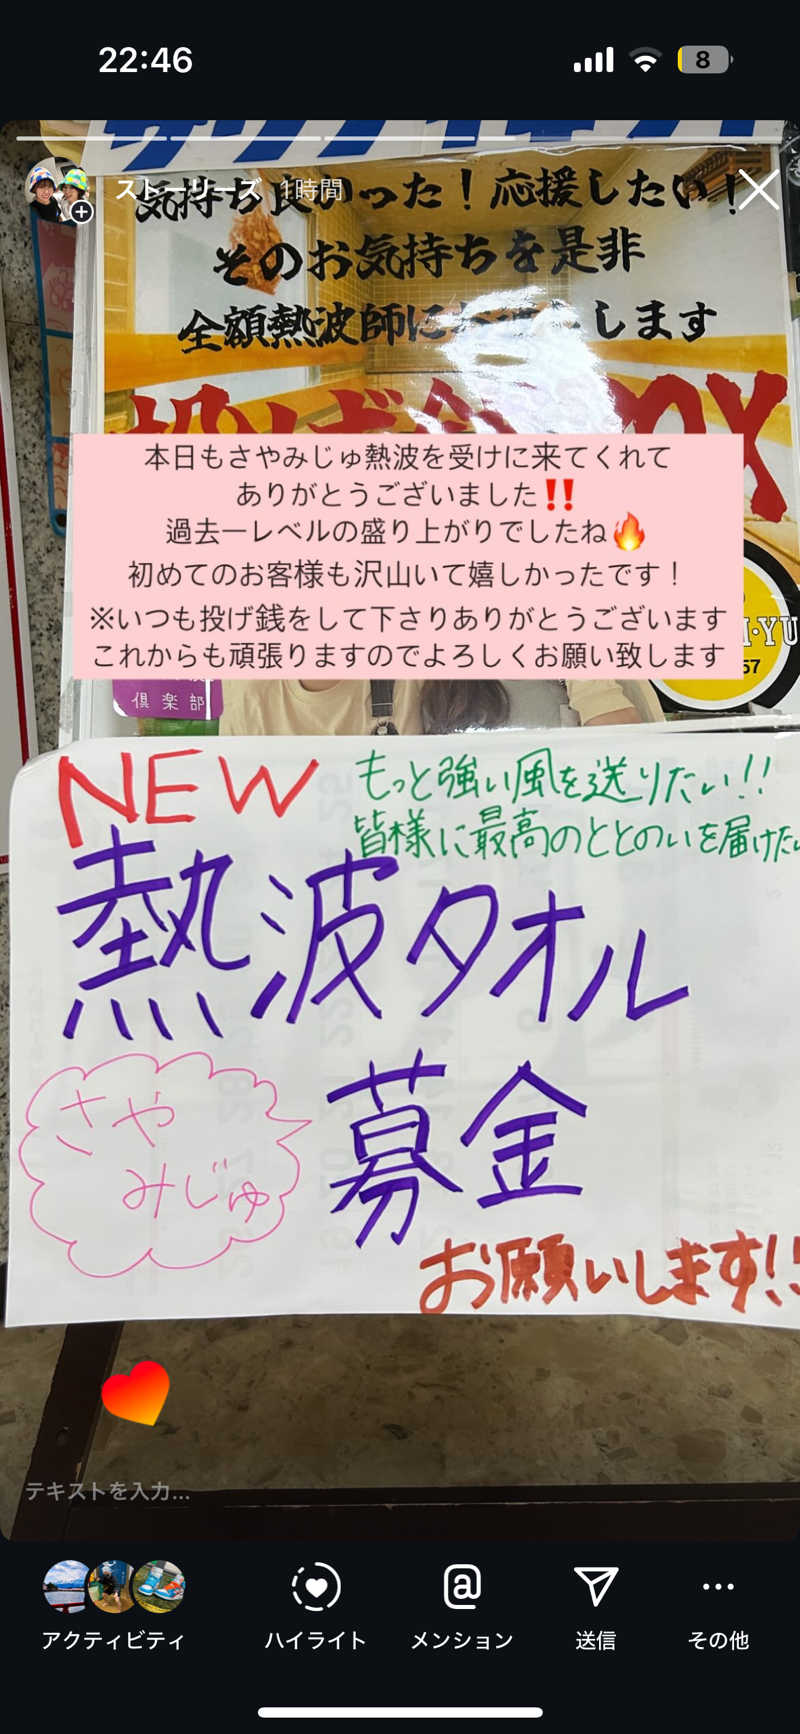 22:46
8
ストーリーズ 1時間
気持ち良かった！応援したい！
そのお気持ちを是非
全額熱波師に します
本日もさやみじゅ熱波を受けに来てくれて
ありがとうございました‼️
過去一レベルの盛り上がりでしたね🔥
初めてのお客様も沢山いて嬉しかったです！
※いつも投げ銭をして下さりありがとうございます
これからも頑張りますのでよろしくお願い致します
倶楽部
NEW
もっと強い風を送りたい!!
皆様に最高のととのいを届けたい
熱波タオル
募金
さや
みじゅ
お願いします!!
テキストを入力...
アクティビティ
ハイライト
メンション
送信
その他